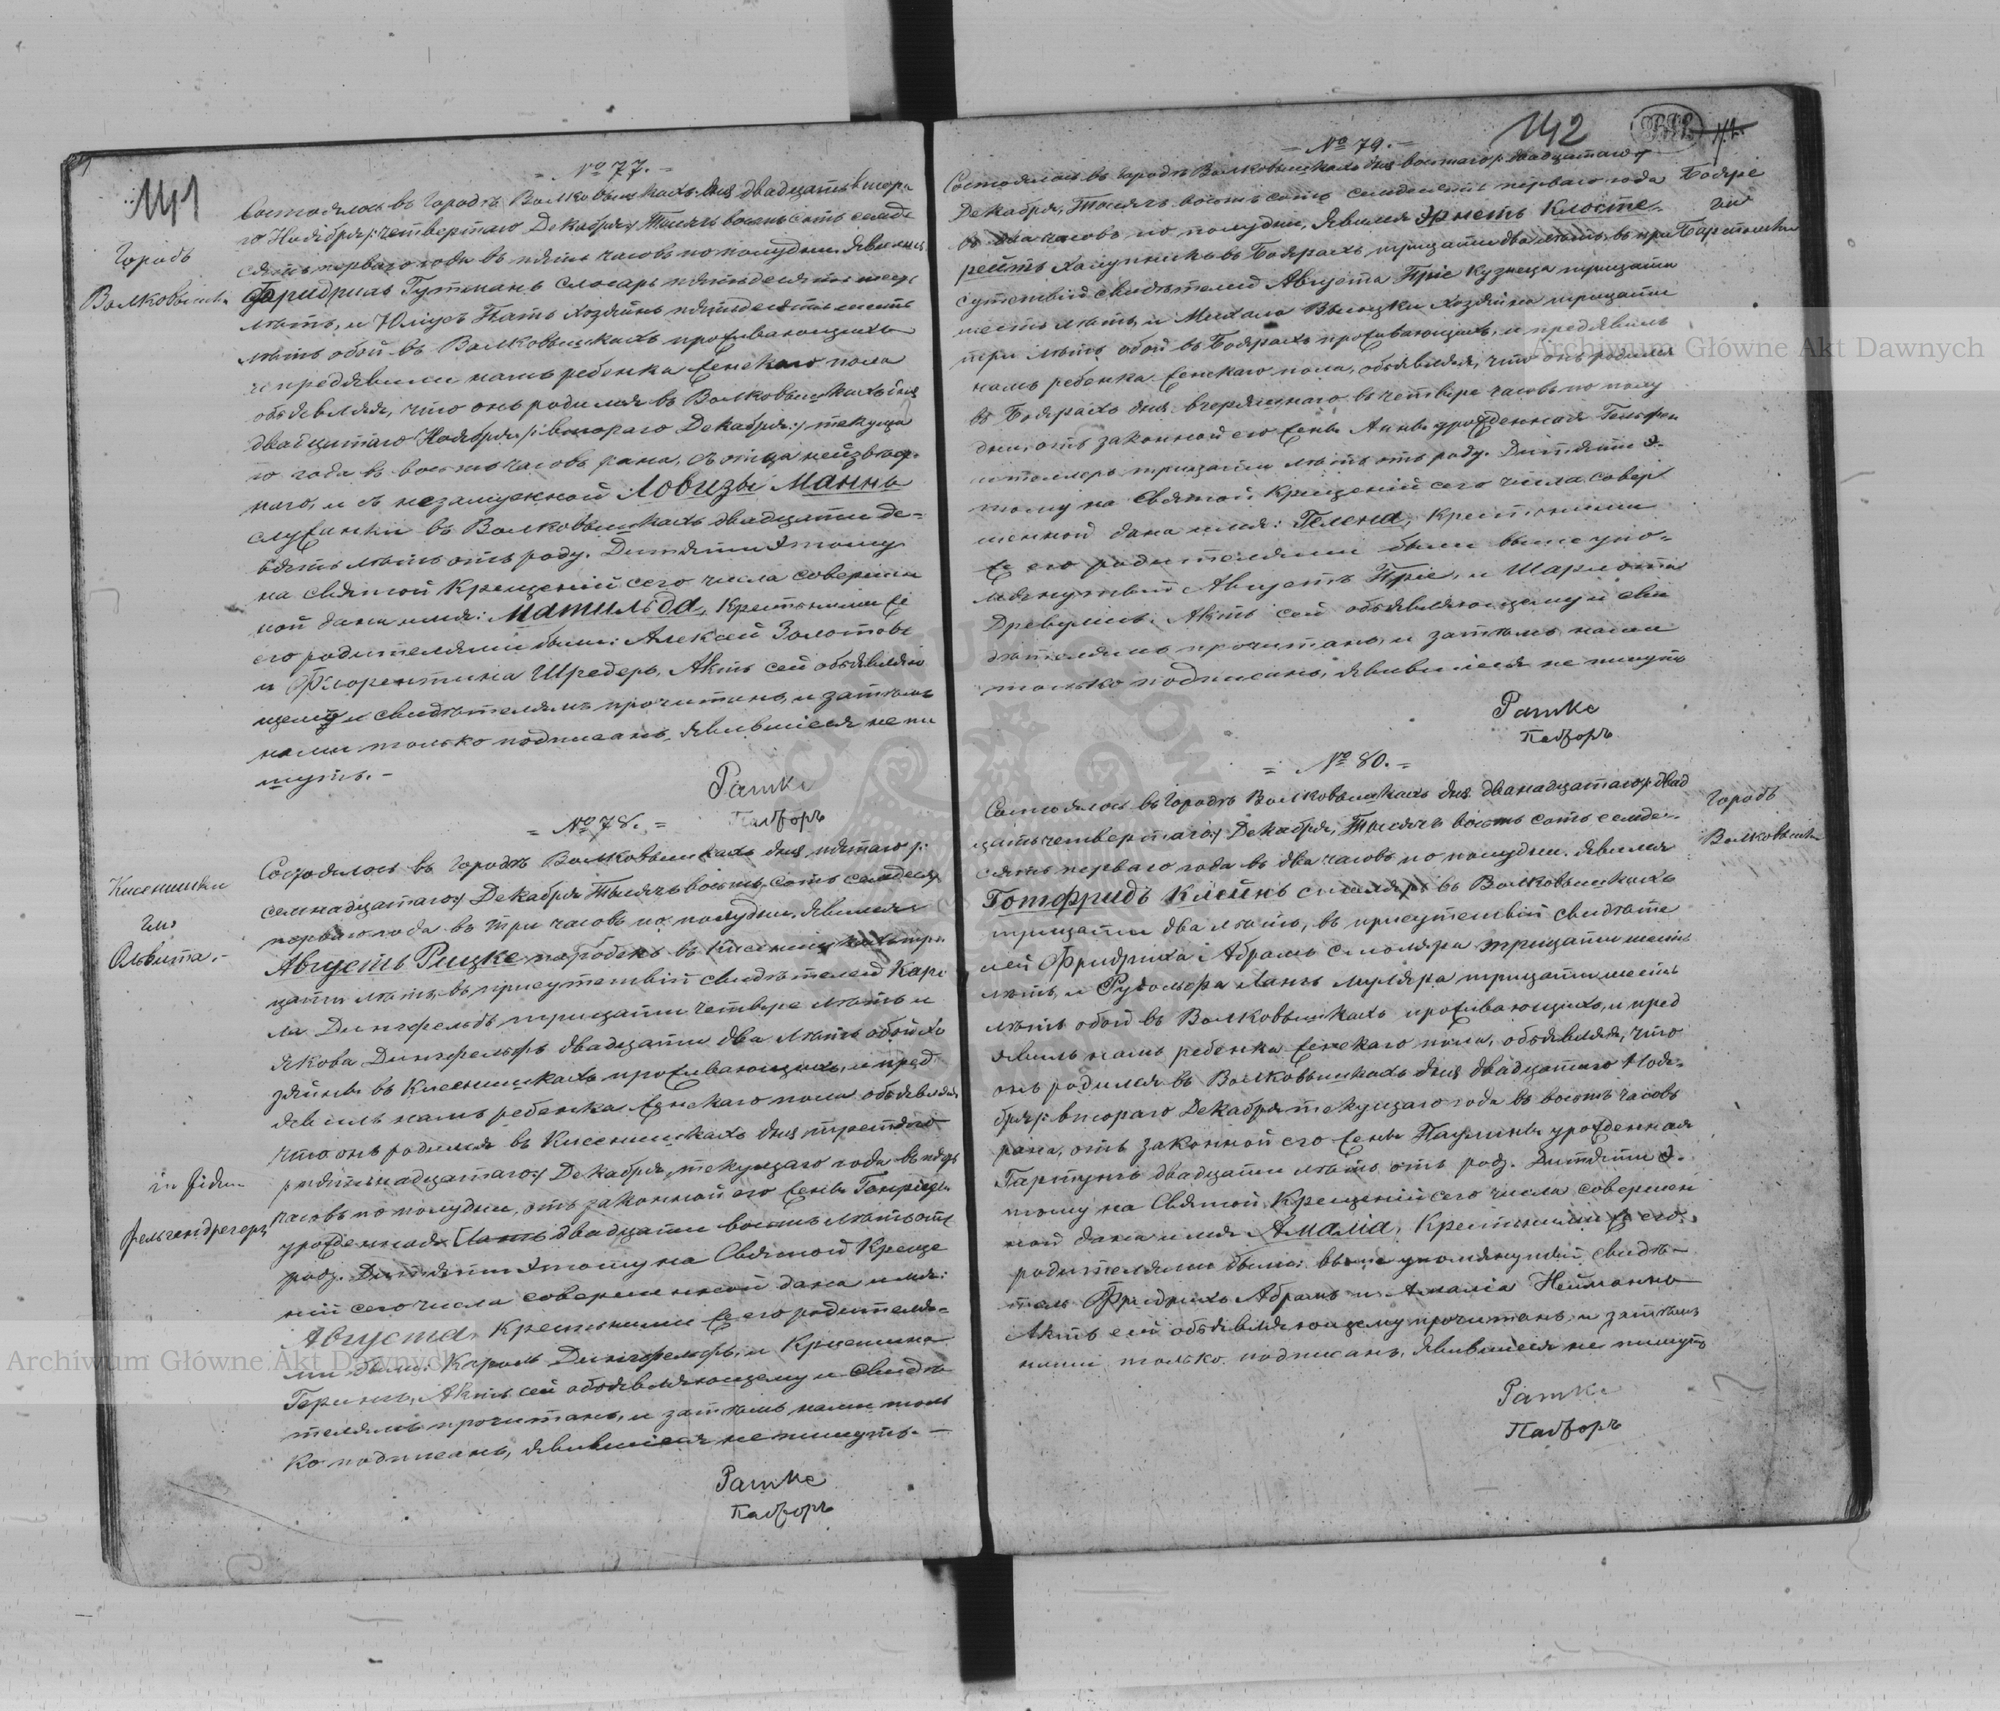 141
№ 77.
Городъ
Волковышки
Состоялось въ городѣ Волковышкахъ дня двадцать втора
го Ноября /: четвертаго Декабря :/ Тысяча восемь сотъ семьде
сятъ перваго года въ пять часовъ по полудни. Явились
Фридрихъ Гутманъ слесарь пятьдесятъ
лѣтъ, и Юлiусъ Патъ хозяинъ пятьдесятъ шесть
лѣтъ обой въ Волковышкахъ проживающихъ
и предъявили намъ ребенка женскаго пола
объявляя, что онъ родился въ Волковышкахъ дня
двадцатаго Ноября /: втораго Декабря :/ текуща
го года въ восемь часовъ рана, съ отца неизвѣст
наго, и съ незамужной Ловизы Манны
служанки въ Волковышкахъ двадцати де=
вять лѣтъ отъ роду. Дитяти этому
на святой Крещенiй сего числа совершен
ной дана имя: Матильда, Крестными же
его родителями были: Алексей Золотовъ
и Флорентина Шредеръ, Актъ сей объявляю
щему и свидѣтелямъ прочитанъ, и затѣмъ
нами только подписанъ, явившiеся не пи
шутъ. –
Ратке
Пасторъ
= № 78. =
Кисенишки
Гм
Ольвита. -
Состоялось въ городѣ Волковышкахъ дня пятаго /:
семнадцатаго :/ Декабря Тысяча восемь сотъ семдеся
перваго года въ три часовъ по полудни. Явился
Августъ Рицке паробекъ въ Кисенишкахъ три
цати лѣтъ, въ присутствiй свидѣтелей Кар
ла Дингфельдъ трицати четвире лѣтъ и
Якова Дингфельдъ двадцати два лѣтъ обой хо
зяйнъ въ Кисенишкахъ проживающихъ, и пред
явилъ намъ ребенка женскаго пола объявляя,
что онъ родился въ Кисенишкахъ дня третяго
/: пятьнадцатаго :/ Декабря, текущаго года въ пять
часовъ по полудни, отъ законной его жены Генрiеты
урожденная Лангъ двадцати восемь лѣтъ отъ
роду. Дитяти этому на Святой Креще
нiй сего числа совершенной дана имя:
Августа, Крестными же его родителя=
ми были: Кароль Дингфельдъ, и Кристина
Герингъ, Актъ сей объявляющему и свидѣ
телямъ прочитанъ, и затѣмъ нами толь
ко подписанъ, явившiеся не пишутъ. –
in fidem
Ратке
Пасторъ
142
= № 79. =
Состоялось въ городѣ Волковышкахъ дня восьмаго /: двадцатаго :/
Декабря, Тысяча восемь сотъ семдесятъ перваго года
въ два часовъ по полудни, Явился Эрнстъ Клосте
рейтъ Халупникъ въ Боярахъ трицати два лѣтъ, въ при
сутствiй свидѣтелей Августа Прiе Кузнеца трицати
шесть лѣтъ и Михала Высоцки Хозяйна трицати
три лѣтъ обой въ Боярахъ проживающихъ, и предявилъ
намъ ребенка женскаго пола, объявляя, что онъ родился
въ Боярахъ дня вчеряшнаго въ четвире часовъ по полу
дни, отъ законной его жены Анны урожденная Гельфен
штеллеръ трицати лѣтъ отъ роду. Дитяти э=
тому на Святой Крещенiй сего числа совер
шенной дана имя: Гелена, Крестными
же его родителями были вышеупо=
мянутый Августъ Прiе, и Шарлота
Древулисъ. Актъ сей объявляющему и сви
дѣтелямъ прочитанъ, и затѣмъ нами
только подписанъ, явившiеся не пишутъ
Бояре
Гм
Бартники
Ратке
Пасторъ
= № 80. =
Городъ
Волковышки
Состоялось въ городѣ Волковышкахъ дня дванадцатаго /: двад
цать четвертаго :/ Декабря, Тысяча восемь сотъ семде=
сятъ перваго года въ два часовъ по полудни. Явился
Готфридъ Клейнъ столяръ въ Волковышкахъ
трицати два лѣтъ, въ присутствiй свидѣте
лей Фридриха Абрамъ столяра трицати шесть
лѣтъ, и Рудольфа Лангъ муляра трицати шесть
лѣтъ обой въ Волковышкахъ проживающихъ, и пред
явилъ намъ ребенка женскаго пола, объявляя, что
онъ родился въ Волковышкахъ дня двадцатаго Ноя=
бря /: втораго Декабря текущаго года въ восемъ часовъ
рана, отъ законной его жены Паулины урожденная
Гартунгъ двадцати лѣтъ отъ роду. Дитяти э=
тому на Святой Крещенiй сего числа совершен
ной дана имя Амалiа, Крестными же его
родителями были: вышеупомянутый свидѣ=
тель Фридрихъ Абрамъ и Амалiа Нейманнъ
Актъ сей объявляющему прочитанъ и затѣмъ
нами только подписанъ, явившiеся не пишутъ
Ратке
Пасторъ
Archiwum Główne Akt Dawnych
Archiwum Główne Akt Dawnych